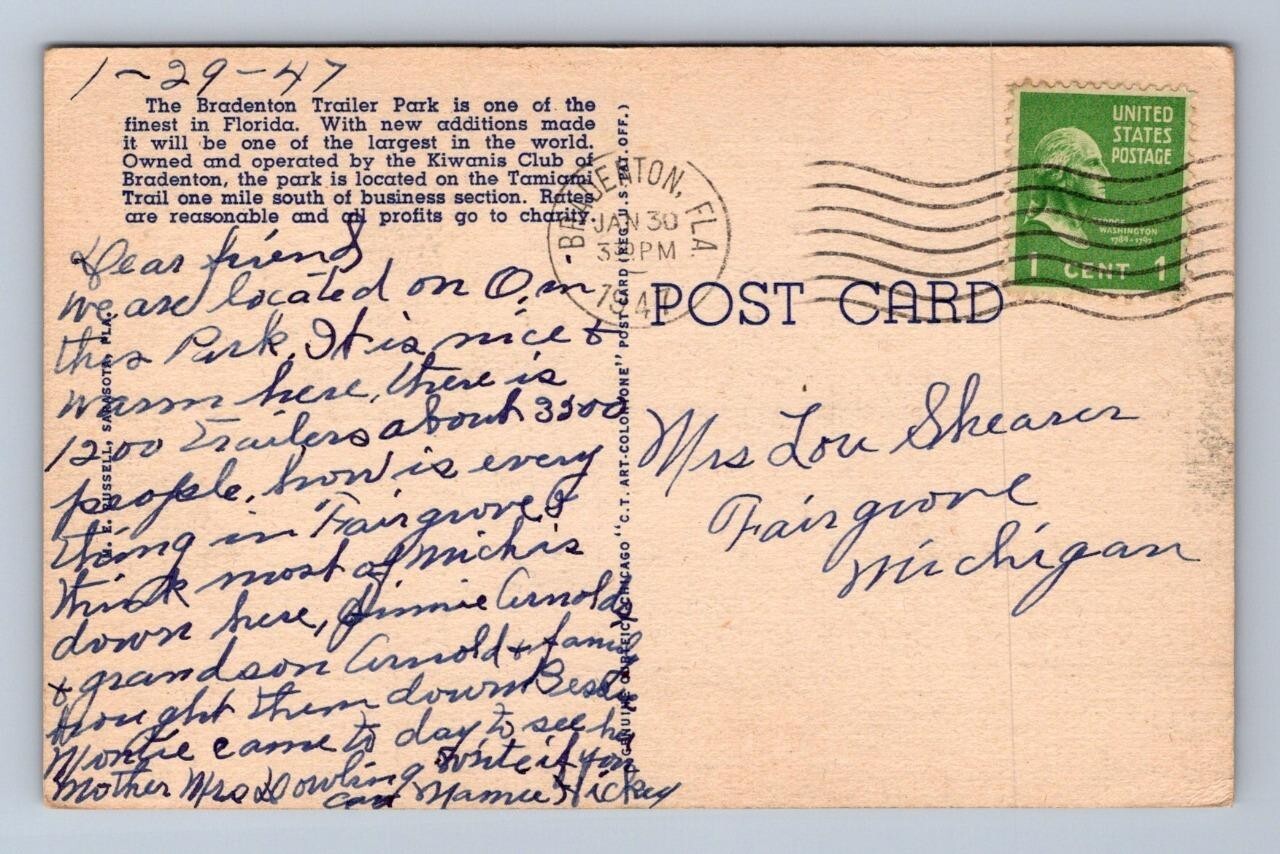 1-29-47
The Bradenton Trailer Park is one of the
finest in Florida. With new additions made
it will be one of the largest in the world.
Owned and operated by the Kiwanis Club of
Bradenton, the park is located on the Tamiami
Trail one mile south of business section. Rates
are reasonable and all profits go to charity.
Dear friend
we are located on O, in
this Park. It is nice &
warm here, there is
1200 Trailers about 3500
people. how is every
thing in Fairgrove I
think most of Mich is
down here, Jimmie Arnolds
& grandson Arnold & family
brought them down Bessie
Montie came to day to see her
mother Mrs Dowling write if you
can Mamie Hickey
M. E. RUSSELL, SARASOTA, FLA.
GENUINE CURTEICH-CHICAGO "C.T. ART-COLORTONE" POST CARD (REG. U.S. PAT. OFF.)
BRADENTON, FLA.
JAN 30
PM
1947
UNITED
STATES
POSTAGE
GEORGE
WASHINGTON
1789-1797
1 CENT 1
POST CARD
Mrs Lou Shearer
Fairgrove
Michigan